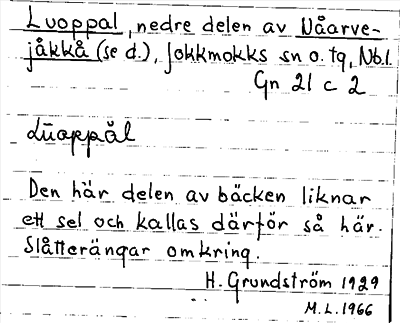 Luoppal, nedre delen av Nåarve-
jåkkå (se d.), Jokkmokks sn o. tg, Nb.l.
Gn 21 c 2
Lūoppăl
Den här delen av bäcken liknar
ett sel och kallas därför så här.
Slåtterängar omkring.
H. Grundström 1929
M.L. 1966